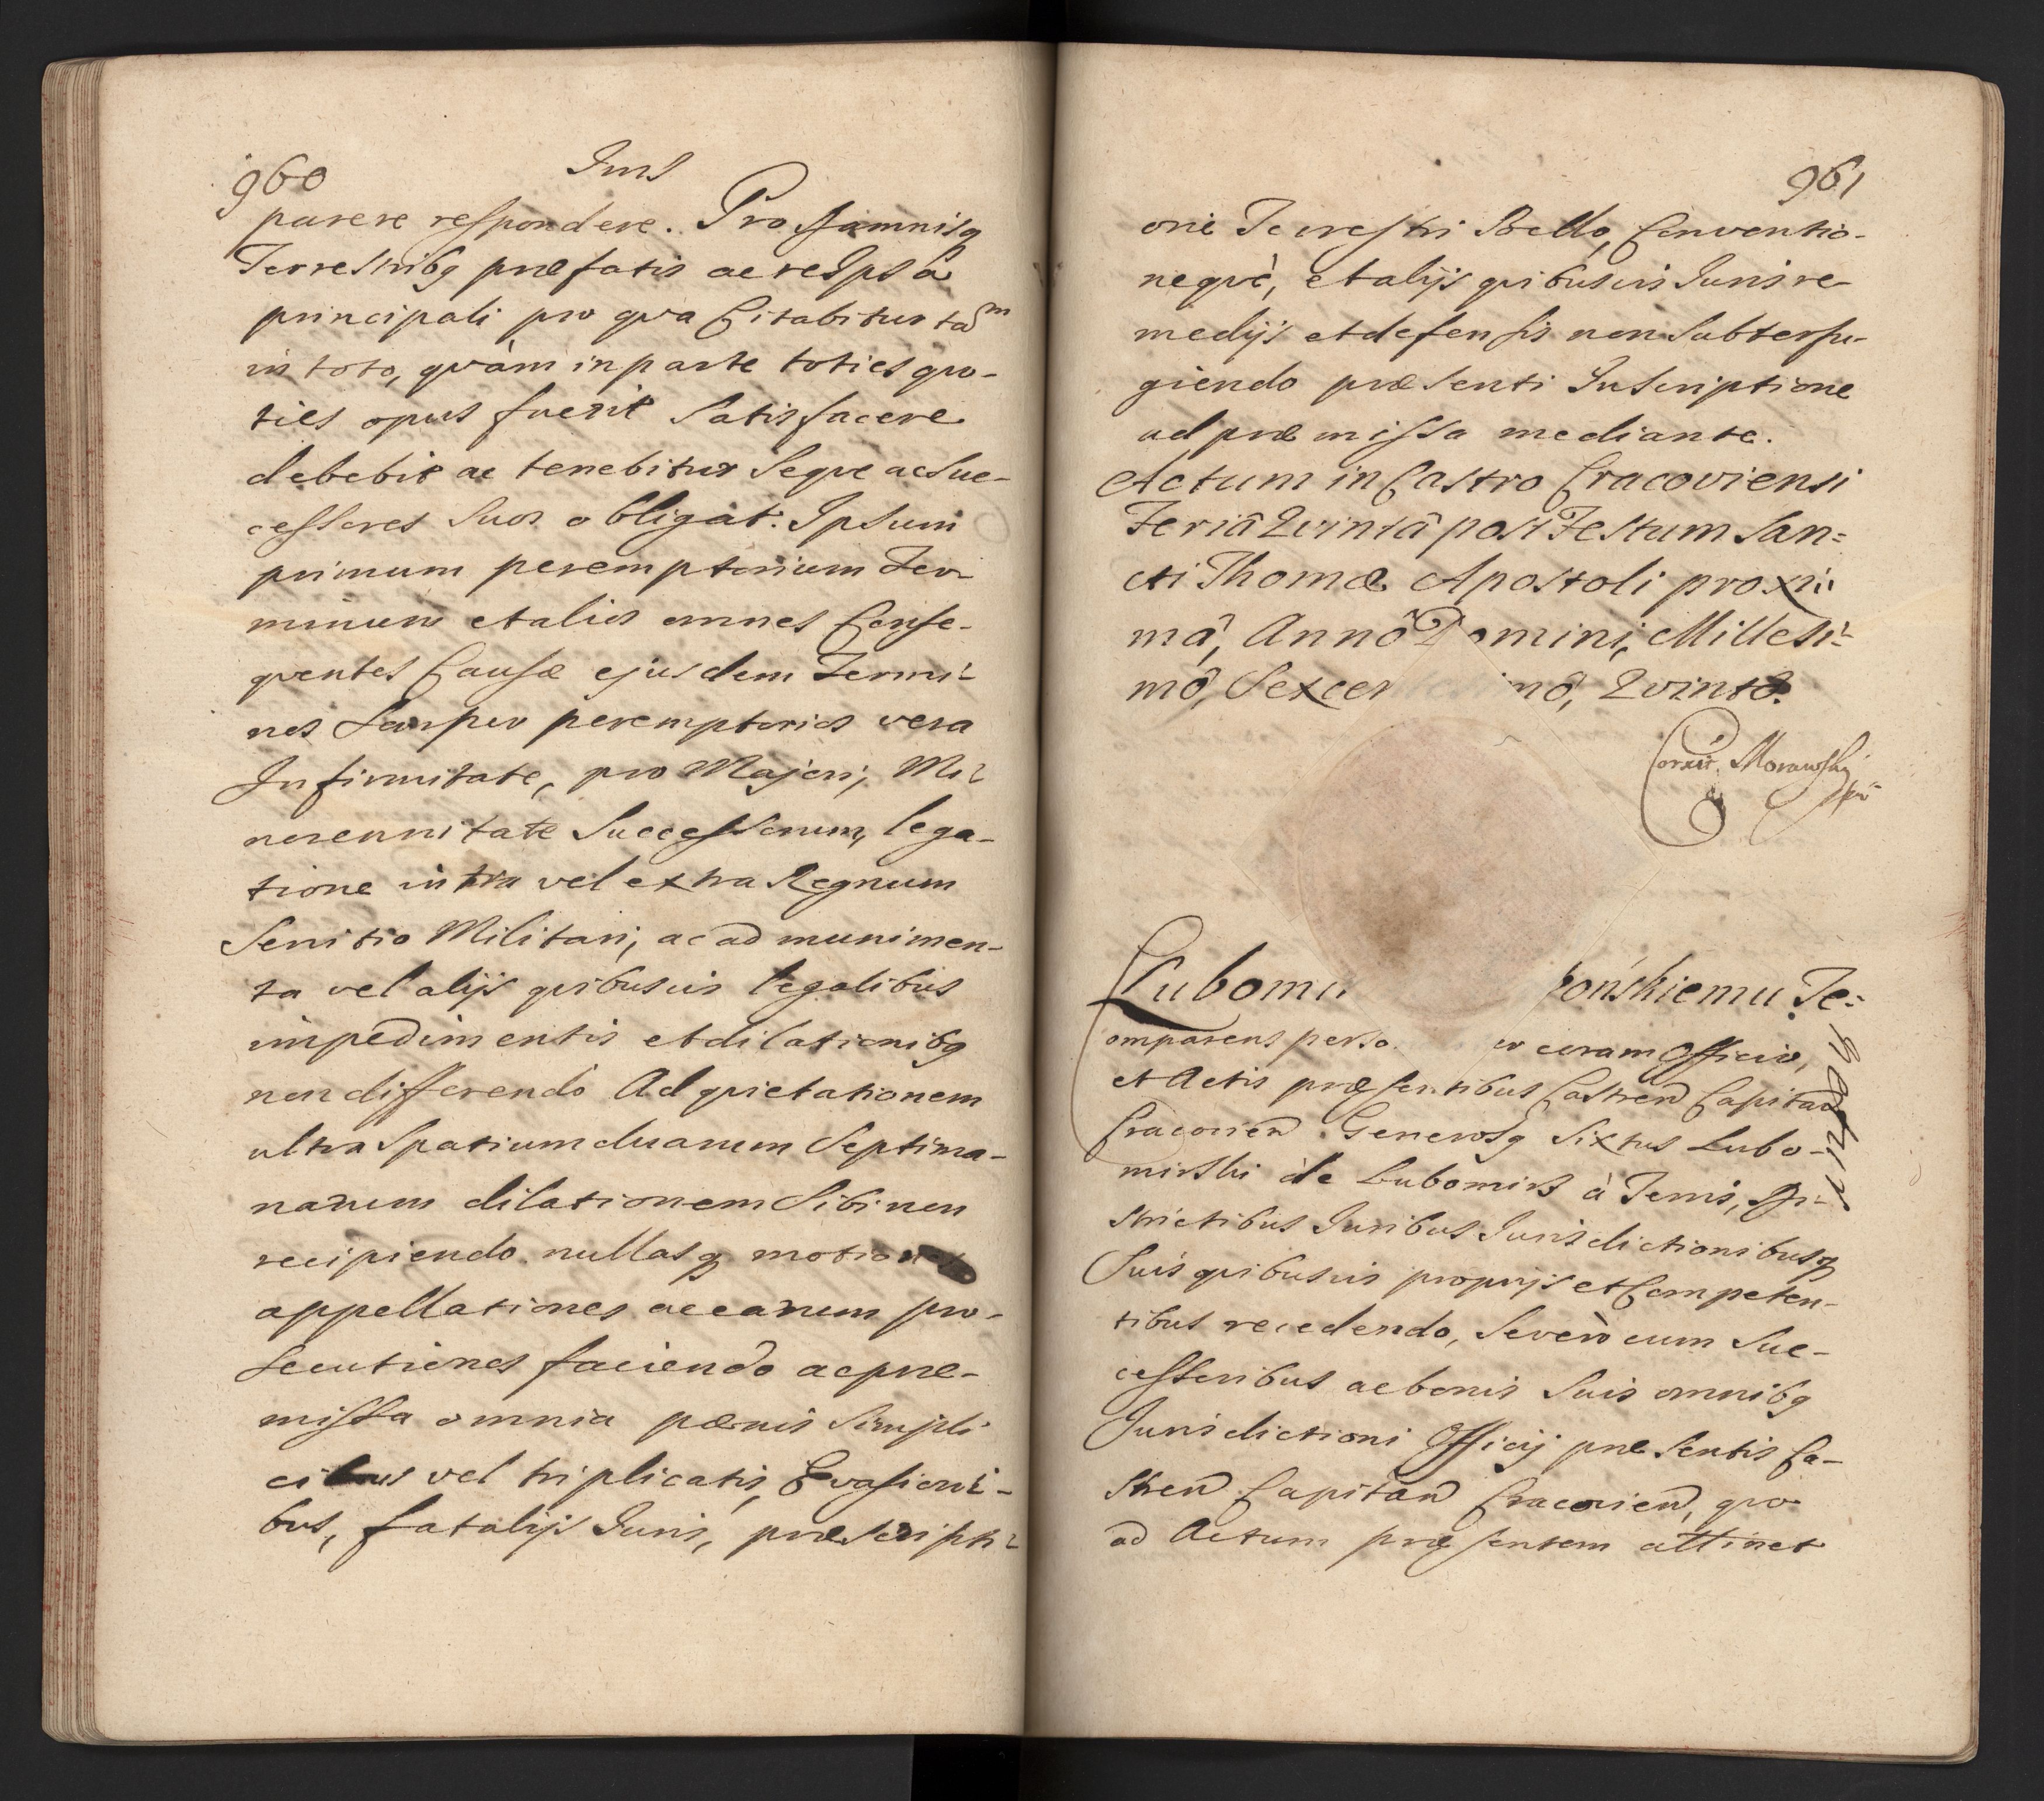 960
Juris
parere respondere. Pro damnisq
Terrestribq præfatis ac re Ipsa
principali pro qva Citabitur tam
in toto, qvàm in parte toties qvo-
ties opus fuerit Satisfacere
debebit ac tenebitur Seqve ac Suc-
cessores Suos obligat. Ipsum
primum peremptorium Ter-
minum et alios omnes Conse-
qventes Causæ ejusdem Termi-
nos Semper peremptorios vera
Infirmitate, pro Majori, Mi-
norennitate Successorum, lega-
tione intra vel extra Regnum
Servitio Militari, ac ad munimen-
ta vel alijs qvibusvis legalibus
impedimentis et dilationibq
non differendo Ad qvietationem
ultra Spatium duarum Septima-
narum dilationem Sibi non
recipiendo nullasq motiones
appellationes ac earum pro-
secutiones faciendo ac præ-
missa omnia pænis Simpli
cibus vel triplicatis, Evasioni-
bus, fatalijs Juris, præscripti-
961
one Terrestri Bello, Conventio-
neqvè, et alijs qvibusvis Juris re-
medijs et defensis non Subterfu-
giendo præsenti Inscriptione
ad præmissa mediante.
Actum in Castro Cracoviensi
Feriâ Qvintâ post Festum San=
cti Thomæ Apostoli proxi=
mâ, Annô Domini, Millesi-
mô, Sexcen mô, Qvintô.
Morawski
mpr
Lubomi końskiemu Te=
gestrum
omparens perso er coram Officio,
et Actis præsentibus Castren Capitan
Cracovien Generosq Sixtus Lubo-
mirski de Lubomirz à Terris, Di-
strictibus Juribus Jurisdictionibusq
Suis qvibusvis proprijs et Competen-
tibus recedendo, Severò cum Suc-
cessoribus ac bonis Suis omnibq
Jurisdictioni Officij præsentis Ca-
stren Capitan Cracovien, qvo
ad Actum præsentem attinet